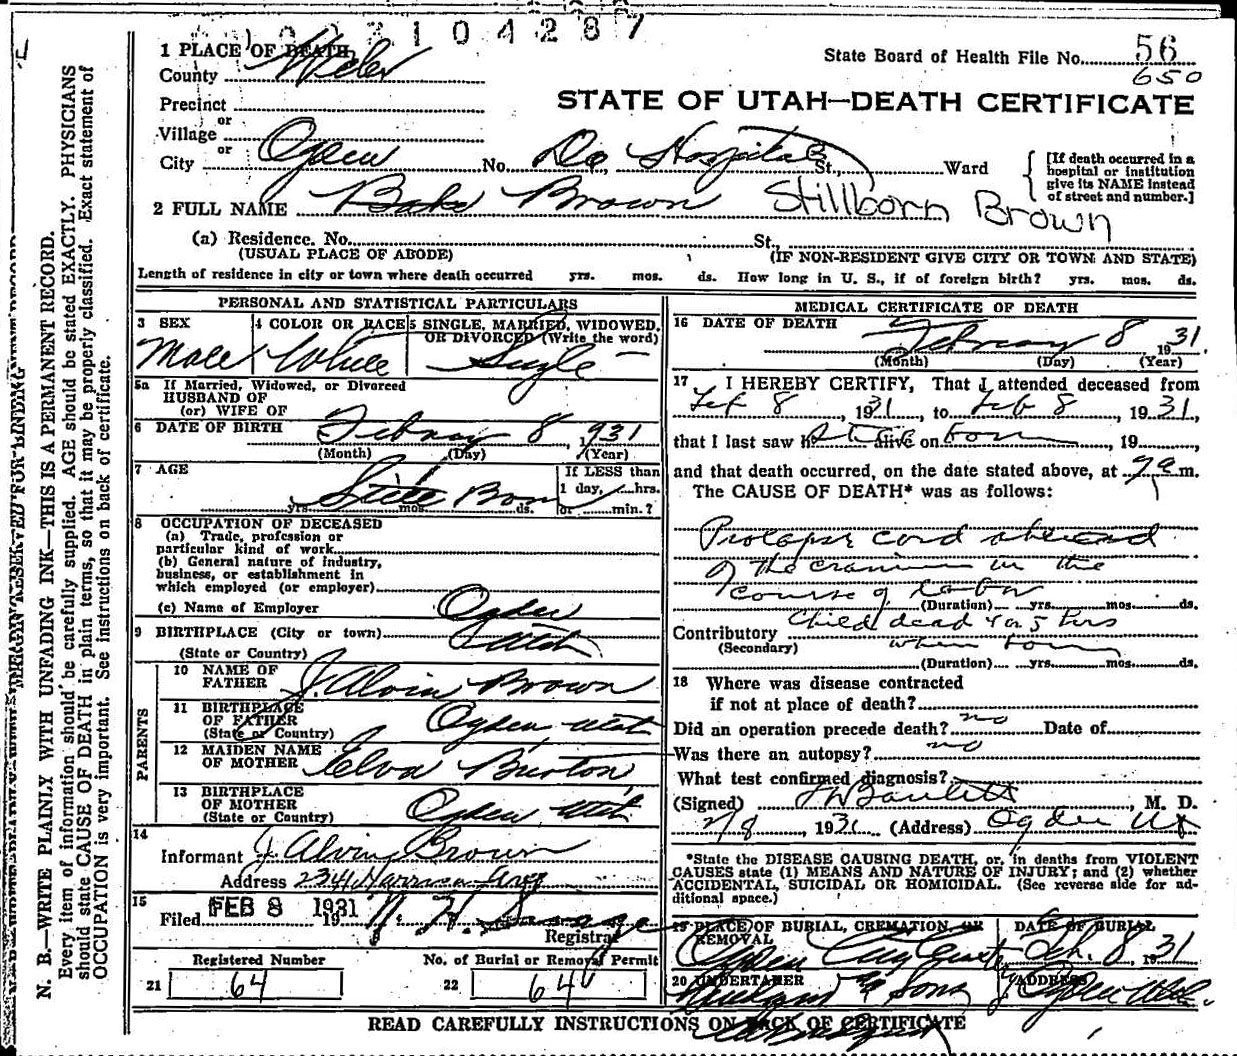 3104287
1 PLACE OF DEATH
County Weber
State Board of Health File No. 56
650
Precinct
or
Village
STATE OF UTAH—DEATH CERTIFICATE
or
City Ogden No. Dee Hospital St., Ward
[If death occurred in a hospital or institution give its NAME instead of street and number.]
2 FULL NAME Brown Stillborn Brown
(a) Residence. No. St.,
(USUAL PLACE OF ABODE) (IF NON-RESIDENT GIVE CITY OR TOWN AND STATE)
Length of residence in city or town where death occurred yrs. mos. ds. How long in U. S., if of foreign birth? yrs. mos. ds.
PERSONAL AND STATISTICAL PARTICULARS
3 SEX 4 COLOR OR RACE 5 SINGLE, MARRIED, WIDOWED, OR DIVORCED (Write the word)
Male White Single
5a If Married, Widowed, or Divorced
HUSBAND OF
(or) WIFE OF
6 DATE OF BIRTH February 8 1931
(Month) (Day) (Year)
7 AGE If LESS than
Still Born 1 day, hrs.
yrs. mos. ds. or min.?
8 OCCUPATION OF DECEASED
(a) Trade, profession or
particular kind of work
(b) General nature of industry,
business, or establishment in
which employed (or employer)
(c) Name of Employer
9 BIRTHPLACE (City or town) Ogden
(State or Country) Utah
PARENTS
10 NAME OF FATHER J. Alvin Brown
11 BIRTHPLACE OF FATHER (State or Country) Ogden Utah
12 MAIDEN NAME OF MOTHER Elva Burton
13 BIRTHPLACE OF MOTHER (State or Country) Ogden Utah
14
Informant J. Alvin Brown
Address 2341 Harrison
15
Filed FEB 8 1931 19
Registrar
Registered Number No. of Burial or Removal Permit
21 64 22 64
MEDICAL CERTIFICATE OF DEATH
16 DATE OF DEATH
February 8 1931
(Month) (Day) (Year)
17 I HEREBY CERTIFY, That I attended deceased from
Feb 8, 1931, to Feb 8, 1931,
that I last saw h alive on born, 19
and that death occurred, on the date stated above, at 7 a m.
The CAUSE OF DEATH* was as follows:
Prolapse cord ahead
of the cranium in the
course of labor
(Duration) yrs. mos. ds.
Contributory Child dead 4 or 5 hrs
(Secondary) when born
(Duration) yrs. mos. ds.
18 Where was disease contracted
if not at place of death?
Did an operation precede death? no Date of
Was there an autopsy? no
What test confirmed diagnosis?
(Signed) Bartlett, M. D.
2/8, 1931 (Address) Ogden Ut
*State the DISEASE CAUSING DEATH, or, in deaths from VIOLENT
CAUSES state (1) MEANS AND NATURE OF INJURY; and (2) whether
ACCIDENTAL, SUICIDAL OR HOMICIDAL. (See reverse side for additional space.)
19 PLACE OF BURIAL, CREMATION, OR REMOVAL DATE OF BURIAL
Ogden City Feb. 8, 1931
20 UNDERTAKER ADDRESS
& Sons Ogden Utah
READ CAREFULLY INSTRUCTIONS ON BACK OF CERTIFICATE
MARGIN RESERVED FOR BINDING
N. B.—WRITE PLAINLY WITH UNFADING INK—THIS IS A PERMANENT RECORD.
Every item of information should be carefully supplied. AGE should be stated EXACTLY. PHYSICIANS
should state CAUSE OF DEATH in plain terms, so that it may be properly classified. Exact statement of
OCCUPATION is very important. See instructions on back of certificate.